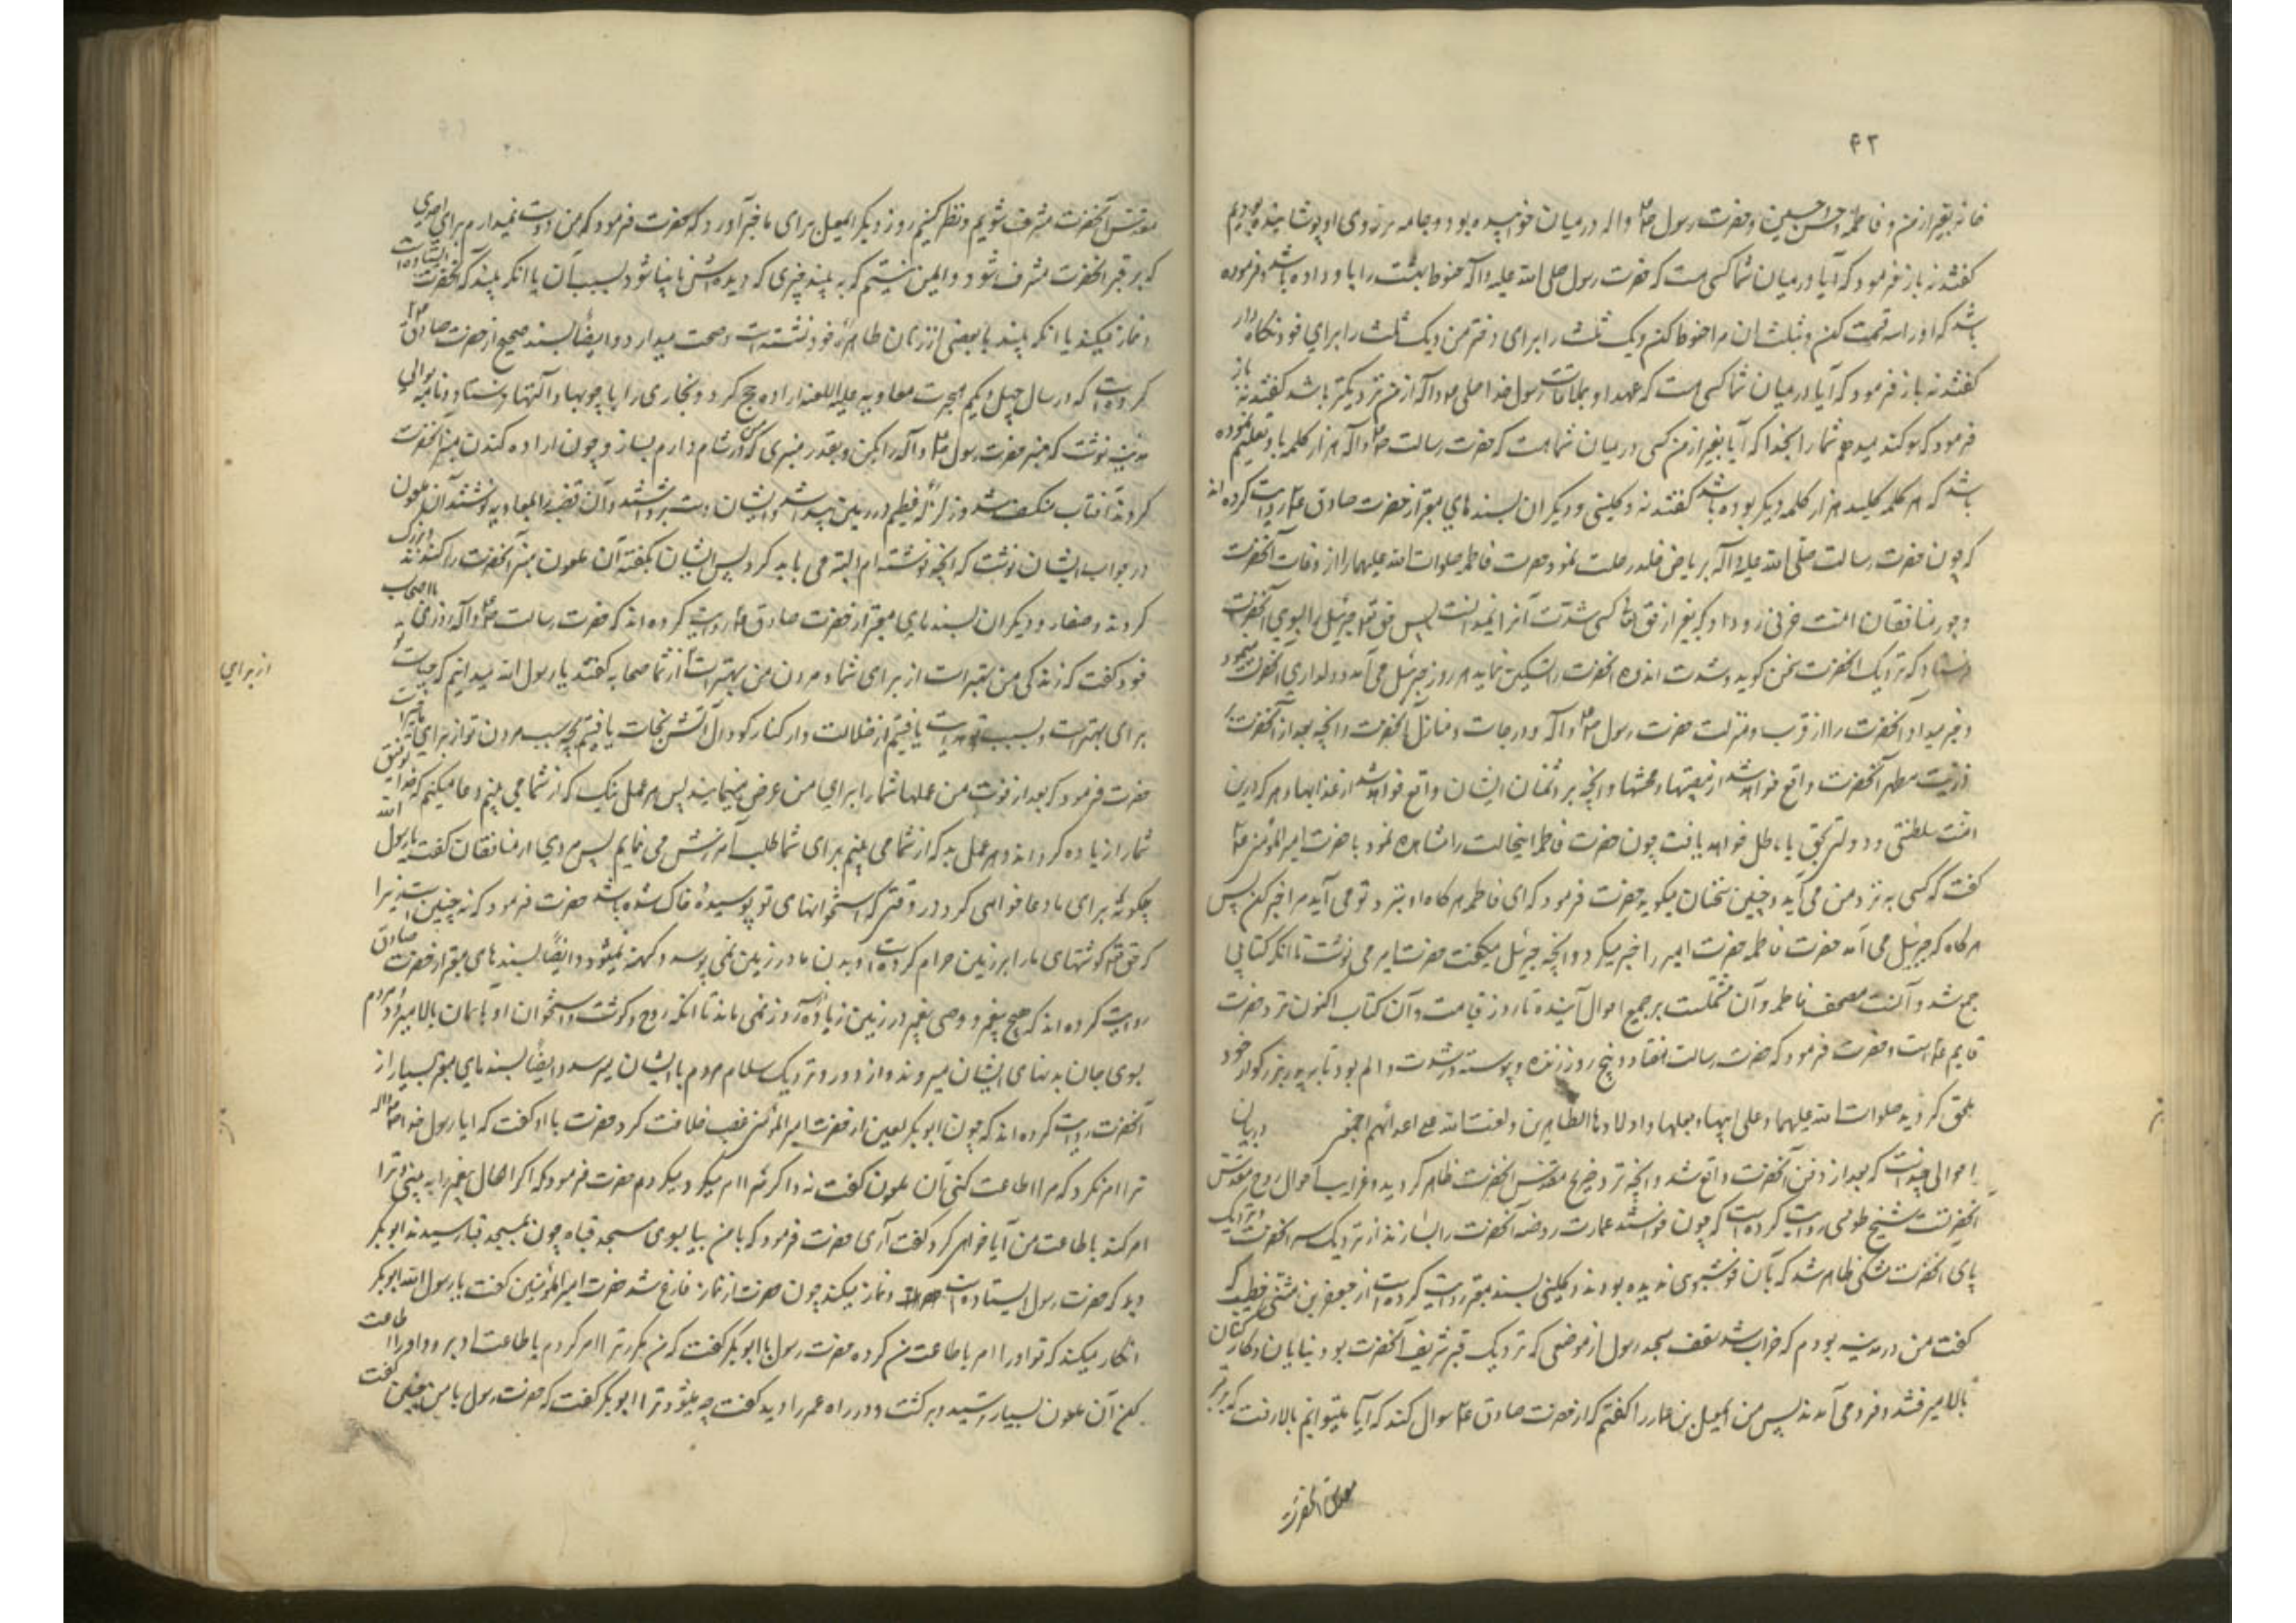 ۴۲
خانه بغیر از من و فاطمه و حسن و حسین و حضرت رسول ص واله در میان خوابیده بود و جامه بر روی او پوشانیده بودیم
کفتند نه باز فرمود که آیا در میان شما کسی هست که حضرت رسول صلی الله علیه واله حنوط بهشت را باو داده باشد و فرموده
باشد که اورا سه قسمت کن و بثلث ان مرا حنوط کن ویک ثلث را برای دختر من ویک ثلث را برای خود نکاه دار
کفتند نه باز فرمود که آیا در میان شما کسی هست که عهد او بملاقات رسول خدا صلی واله از من نزدیکتر باشد کفتند نه باز
فرمود که سوکند میدهم شما را بخدا که آیا بغیر از من کسی در میان شما هست که حضرت رسالت ص واله هزار کلمه باو تعلیم نموده
باشد که هر کلمه کلید هزار کلمه دیکر بوده باشد کفتند نه و کلینی و دیکران بسندهای معتبر از حضرت صادق ع روایت کرده اند
که چون حضرت رسالت صلی الله علیه واله بریاض خلد رحلت نمود حضرت فاطمه صلوات الله علیها را از وفات آنحضرت
و جور منافقان امت حزنی رو داد که بغیر از حق تعالی کسی شدت آنرا نمیدانست پس حق تعالی جبرئیل را بسوی آنحضرت
فرستاد که نزدیک آنحضرت سخن کوید و شدت اندوه آنحضرت را تسکین نماید هر روز جبرئیل می آمد و دلداری آنحضرت مینمود
و خبر میداد آنحضرت را از قرب و منزلت حضرت رسول ص واله و درجات و منازل آنحضرت و آنچه بعد از آنحضرت بر
ذریت مطهر آنحضرت واقع خواهد شد از مصیبتها و محنتها و آنچه بر دشمنان ایشان واقع خواهد شد از عذابها و هر که درین
امت سلطنتی و دولتی بحق یا باطل خواهد یافت چون حضرت فاطمه اینحالت را مشاهده نمود با حضرت امیر المؤمنین ع
کفت که کسی به نزد من می آید و چنین سخنان میکوید حضرت فرمود که ای فاطمه هر کاه او بنزد تو می آید مرا خبر کن پس
هر کاه که جبرئیل می آمد حضرت فاطمه حضرت امیر را خبر میکرد و آنچه جبرئیل میکفت حضرت امیر می نوشت تا انکه کتابی
جمع شد و آنست مصحف فاطمه و آن مشتملست بر جمیع احوال آینده تا روز قیامت و آن کتاب اکنون نزد حضرت
قایم ع است و حضرت فرمود که حضرت رسالت هفتاد و پنج روز زنده و پیوسته در شدت و الم بود تا به پدر بزرکوار خود
ملحق کردید صلوات الله علیهما و علی ابیها و بعلها و اولادها الطاهرین و لعنت الله علی اعدائهم اجمعین در بیان
احوالی چندیست که بعد از دفن آنحضرت واقع شد و آنچه نزد ضریح مقدس آنحضرت ظاهر کردید و غرایب احوال روح مقدس
آنحضرتست شیخ طوسی روایت کرده است که چون خواستند عمارت روضه آنحضرت را بسازند از نزدیک سر آنحضرت و نزدیک
پای آنحضرت مشکی ظاهر شد که بآن خوشبوی ندیده بودند و کلینی بسند معتبر روایت کرده است از جعفر بن مثنی خطیب که
کفت من در مدینه بودم که خراب شد سقف مسجد رسول از موضعی که نزدیک قبر شریف آنحضرت بود بنایان و کارکنان
بالا میرفتند و فرو می آمدند پس من اسمعیل بن عمار را کفتم که از حضرت صادق ع سوال کند که آیا میتوانیم بالا رفت که بر قبر
مقدس آنحضرت
مقدس آنحضرت مشرف شویم و نظر کنیم روز دیکر اسمعیل برای ما خبر آورد که حضرت فرمود که من دوست نمیدارم برای احدی
که بر قبر آنحضرت مشرف شود و ایمن نیستم که به بیند چیزی که دیده اش نابینا شود بسبب آن یا انکه بیند که آنحضرت ایستاده است
و نماز میکند یا انکه بیند با بعضی از زنان طاهره خود نشسته است و صحبت میدارد و ایضا بسند صحیح از حضرت صادق ع
روایت کرده است که در سال چهل ویکم هجرت معاویه علیه اللعنه اراده حج کرد و نجاری را با چوبها و آلتها فرستاد و نامه بوالی
مدینه نوشت که منبر حضرت رسول ص واله را بکن و بقدر منبری که من در شام دارم بساز و چون اراده کندن منبر آنحضرت
کردند آفتاب منکسف شد و زلزله عظیم در زمین پیدا شد و ایشان دست برداشتند و آن قضیه را بمعاویه نوشتند آن ملعون
در جواب ایشان نوشت که آنچه نوشته ام البته می باید کرد پس ایشان بکفته آن ملعون منبر آنحضرت را کندند و بزرک
کردند و صفار و دیکران بسندهای معتبر از حضرت صادق ع روایت کرده اند که حضرت رسالت ص واله روزی با اصحاب
خود کفت که زندکی من بهتر است از برای شما و مردن من بهتر است از شما صحابه کفتند یا رسول الله میدانیم که حیات تو
از برای
برای بهتر است و بسبب تو هدایت یافتیم از ضلالت و از کنار کودال آتش نجات یافتیم بچه سبب مردن تو از برای ما خیر است
حضرت فرمود که بعد از فوت من عملها شما را برای من عرض مینمایند پس هر عمل نیک که از شما می بینم دعا میکنم که خدا توفیق
شما را زیاده کرداند و هر عمل بد که از شما می بینم برای شما طلب آمرزش می نمایم پس مردی از منافقان کفت یا رسول الله
چکونه برای ما دعا خواهی کرد در وقتی که استخوانهای تو پوسیده و خاک شده باشد حضرت فرمود که نه چنین است زیرا
که حق تعالی کوشتهای ما را بر زمین حرام کرده است و بدن ما در زمین نمی پوسد و کهنه نمیشود و ایضا بسندهای معتبر از حضرت صادق
روایت کرده اند که هیچ پیغمبر و وصی پیغمبر در زمین زیاده از سه روز نمی ماند تا انکه روح و کوشت و استخوان او بآسمان بالا میرود و مردم
بسوی جای بدنهای ایشان میروند و از دور و نزدیک سلام مردم باایشان میرسد و ایضا بسندهای معتبر بسیار از
آنحضرت روایت کرده اند که چون ابو بکر لعین از حضرت امیر المؤمنین غصب خلافت کرد حضرت با او کفت که ایا رسول خدا ص واله
ترا امر نکرد که مرا اطاعت کنی آن ملعون کفت نه و اکر مرا امر میکرد میکردم حضرت فرمود که اکر الحال پیغمبر را به بینی و ترا
امر کند باطاعت من آیا خواهی کرد کفت آری حضرت فرمود که با من بیا بسوی مسجد قبا و چون بمسجد قبا رسیدند ابو بکر
دید که حضرت رسول ایستاده است و نماز میکند چون حضرت از نماز فارغ شد حضرت امیر المؤمنین کفت یا رسول الله ابو بکر
انکار میکند که تو او را امر باطاعت من کرده حضرت رسول با ابو بکر کفت که من مکرر ترا امر کردم باطاعت او برو و او را اطاعت
کن آن ملعون بسیار ترسید و برکشت و در راه عمر را دید کفت چه میشود ترا ابو بکر کفت که حضرت رسول با من چنین کفت